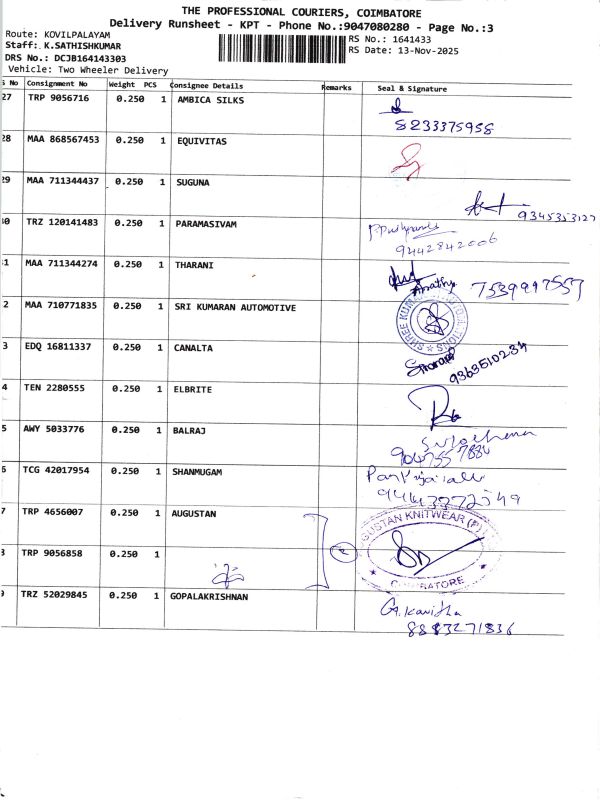 THE PROFESSIONAL COURIERS, COIMBATORE
Delivery Runsheet - KPT - Phone No.:9047080280 - Page No.:3
Route: KOVILPALAYAM
Staff: K.SATHISHKUMAR
DRS No.: DCJB164143303
Vehicle: Two Wheeler Delivery
RS No.: 1641433
RS Date: 13-Nov-2025
S No Consignment No Weight PCS Consignee Details Remarks Seal & Signature
27 TRP 9056716 0.250 1 AMBICA SILKS
8233375958
28 MAA 868567453 0.250 1 EQUIVITAS
29 MAA 711344437 0.250 1 SUGUNA
9345353127
30 TRZ 120141483 0.250 1 PARAMASIVAM
9442842006
31 MAA 711344274 0.250 1 THARANI
7539997557
2 MAA 710771835 0.250 1 SRI KUMARAN AUTOMOTIVE
3 EDQ 16811337 0.250 1 CANALTA
9363510234
4 TEN 2280555 0.250 1 ELBRITE
5 AWY 5033776 0.250 1 BALRAJ
6 TCG 42017954 0.250 1 SHANMUGAM
7 TRP 4656007 0.250 1 AUGUSTAN
AUGUSTAN KNITWEAR (P) LTD
COIMBATORE
2
8 TRP 9056858 0.250 1
9 TRZ 52029845 0.250 1 GOPALAKRISHNAN
G. Kavitha
8883271836